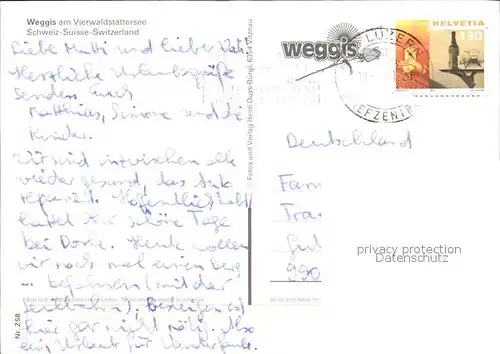 Weggis am Vierwaldstattersee
Schweiz-Suisse-Switzerland
Liebe Mutti und lieber Vati.
Herzliche Urlaubsgrüße
senden Euch
Matthias, Simone und die
Kinder.
Wir sind inzwischen alle
wieder gesund, das Auto
repariert. Hoffentlich
hattet Ihr schöne Tage
bei Doris. Heute wollen
wir noch mal einen Berg
(mit der
Seilbahn). Besteigen ist
hier gar nicht nötig. Also
ein Urlaub für
Nr. 258
© Fotos und Verlag Heidi Vitznau
weggis
LUZERN
BRIEFZENTRUM
HELVETIA
130
Deutschland
Fam
Tra
Gut
990
privacy protection
Datenschutz